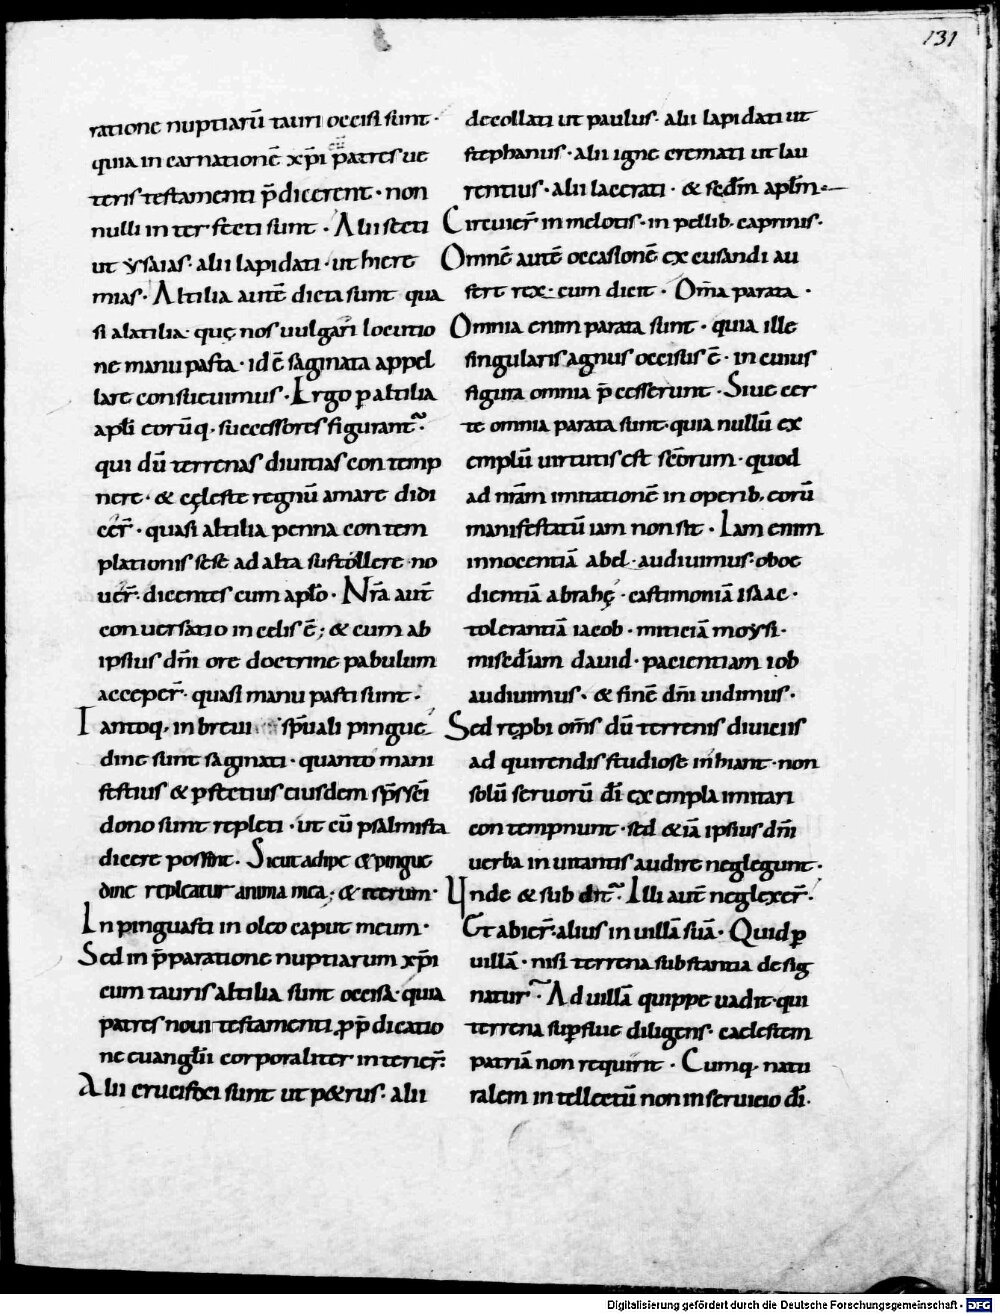 131
ratione nuptiarū tauri occisi sunt·
quia in carnationē xp̄i cū p̄atres ue
teris testamenti p̄dicerent· non
nulli in ter fecti sunt· Alii secti
ut ysaias· alii lapidati· ut hiere
mias· Altilia autē dicta sunt qua
si alatilia· quę nos uulgari locutio
ne manu pasta· id ē saginata appel
lare consueuimus· Ergo p altilia
apl̄i eorūq, successores figurant̄·
qui dū terrenas diuitias con temp
nere· & cęleste regnū amare didi
cer̄· quasi altilia penna con tem
plationis sese ad alta sustollere no
uer̄· dicentes cum apl̄o· Nr̄a aut̄
conuersatio in celis ē; & cum ab
ipsius dn̄i ore doctrine pabulum
acceper̄· quasi manu pasti sunt·
Tantoq, in breui sp̄uali pingue
dine sunt saginati· quanto mani
festius & pfectius eiusdem sp̄s sc̄i
dono sunt repleti· ut cū psalmista
dicere possint· Sicut adipe & pingue
dine repleatur anima mea; & iterum·
Inpinguasti in oleo caput meum·
Sed in p̄paratione nuptiarum xp̄i
cum tauris altilia sunt occisa· quia
patres noui testamenti p p̄dicatio
ne euanglii corporaliter interier̄·
Alii crucifixi sunt ut p&rus· alii
decollati ut paulus· alii lapidati ut
stephanus· alii igne cremati ut lau
rentius· alii lacerati· & sedm̄ aplm̄
Circuier̄ in melotis· in pellib, caprinis·
Omnē autē occasionē excusandi au
fert rex· cum dicit· Om̄a parata·
Omnia enim parata sunt· quia ille
singularis agnus occisus ē· in cuius
figura omnia p̄cesserunt· Siue cer
te omnia parata sunt· quia nullū ex
emplū uirtutis est sc̄orum· quod
ad nr̄am imitationē in operib, eorū
manifestatū iam non sit· Iam enim
innocentiā abel· audiuimus· oboe
dientiā abrahę· castimoniā isaac·
tolerantiā iacob· miticiā moysi·
misedīam dauid· pacientiam iob
audiuimus· & finē dn̄i uidimus·
Sed rep̱bi om̄s dū terrenis diuiciis
ad quirendis studiose inhiant· non
solū seruorū dī exempla imitari
contempnunt· sed &iā ipsius dn̄i
uerba inuitantis audire neglegunt·
Vnde & subdit̄· Illi aut̄ neglexer̄·
Et abier̄· alius in uillā suā· Quid p
uillā· nisi terrena substantia desig
natur· Ad uillā quippe uadit· qui
terrena supflue diligens· caelestem
patriā non requirit· Cumq, natu
ralem in tellectū non in seruicio dī·
Digitalisierung gefördert durch die Deutsche Forschungsgemeinschaft - DFG